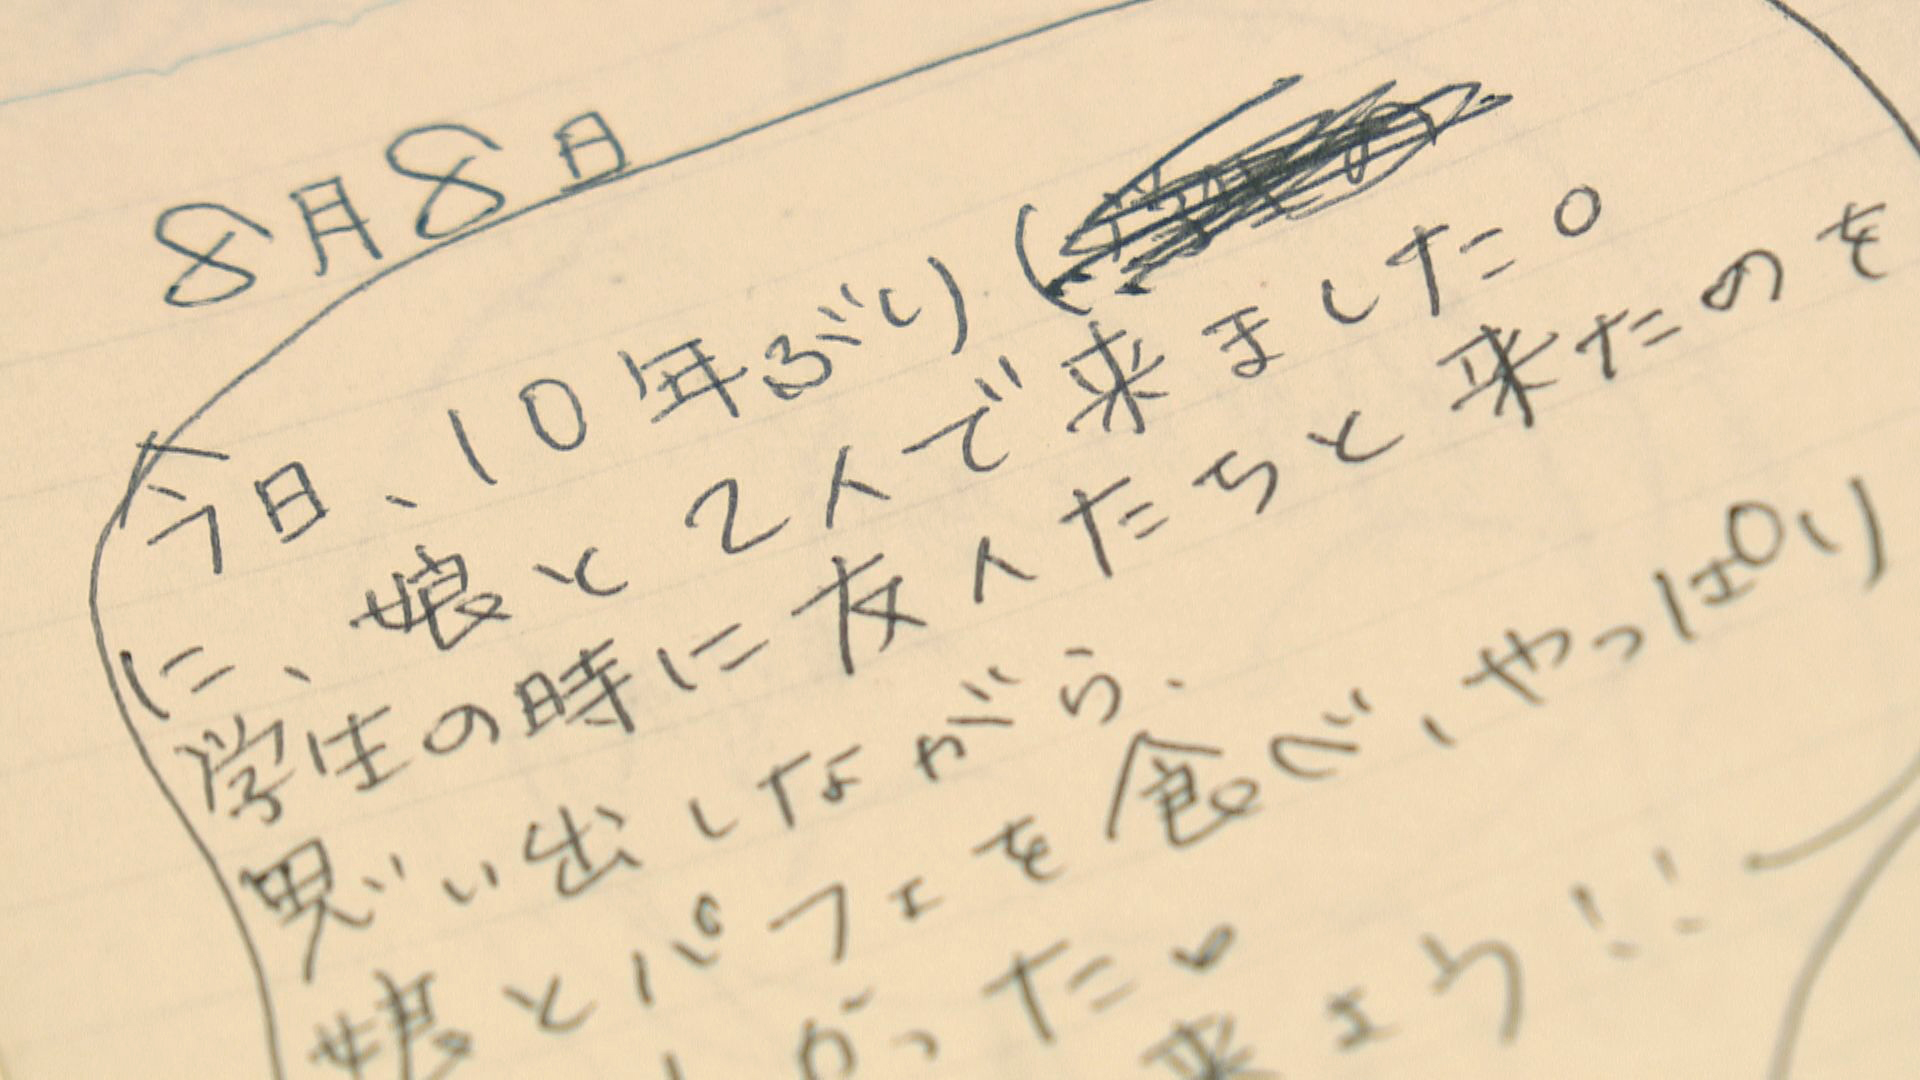 8月8日
今日、10年ぶり(
に、娘と2人で来ました。
学生の時に友人たちと来たのを
思い出しながら、
娘とパフェを食べ、やっぱり
かった♥
来よう!!